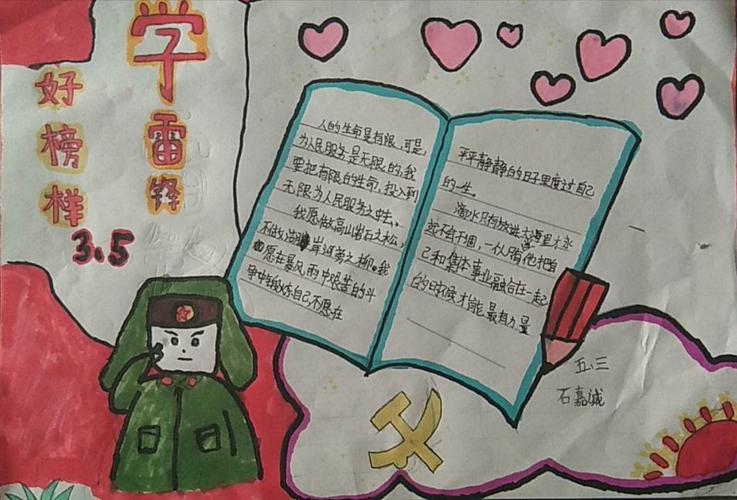 学雷锋
好榜样
3.5
人的生命是有限,可是,
为人民服务是无限的,我
要把有限的生命,投入到
无限为人民服务之中去。
我愿做高山岩石之松,
不做湖岸河旁之柳。我
愿在暴风雨中艰苦的斗
争中锻炼自己不愿在
平平静静的日子里度过自己
的一生
滴水只有放进大海里才永
不干涸,一人 当他把自
己和集体事业融合在一起
的时候才能最有力量
五、三
石嘉诚